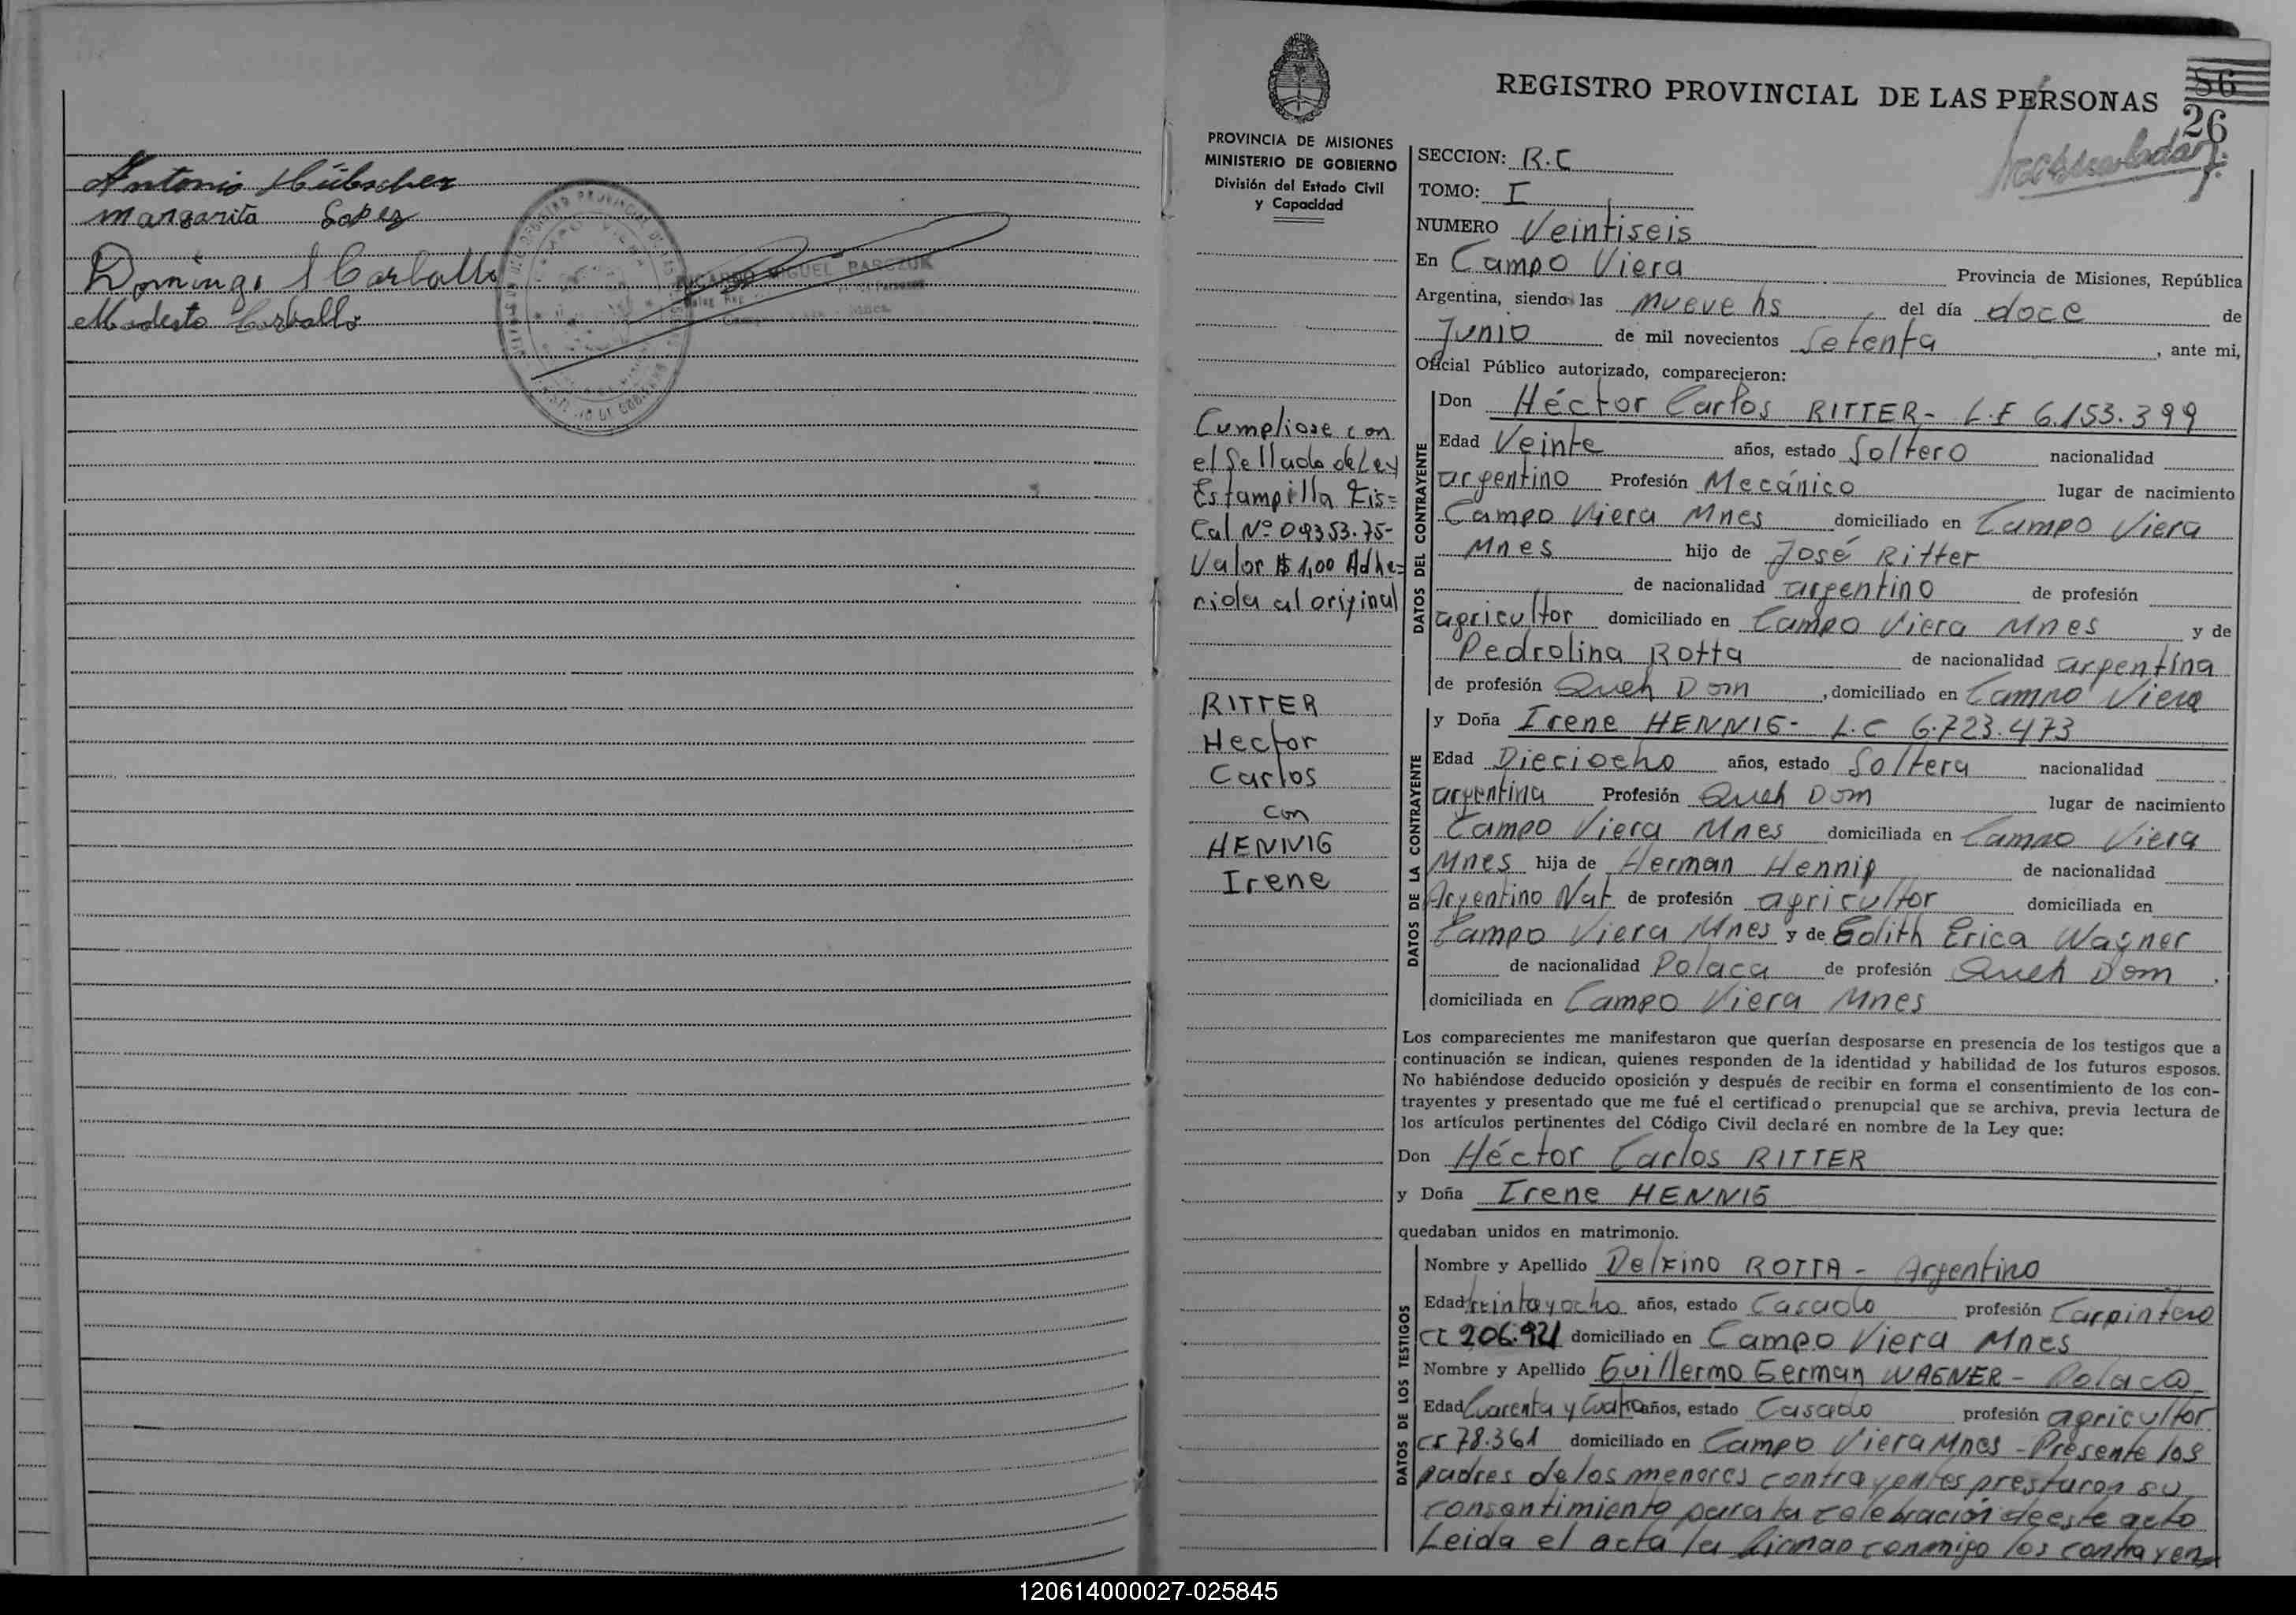 Antonio Hübscher
Margarita Lopez
Domingo Carballo
Modesto Carballo
RICARDO MIGUEL PASCZUK
PROVINCIA DE MISIONES
MINISTERIO DE GOBIERNO
División del Estado Civil
y Capacidad
Cumpliose con
el Sellado de Ley
Estampilla Fis=
cal Nº 09353.75-
Valor $ 1,00 Adhe=
rida al original
RITTER
Hector
Carlos
con
HENNIG
Irene
REGISTRO PROVINCIAL DE LAS PERSONAS
86
26
SECCION: R.C
TOMO: I
NUMERO Veintiseis
En Campo Viera Provincia de Misiones, República
Argentina, siendo las nueve hs del día doce de
Junio de mil novecientos Setenta, ante mi,
Oficial Público autorizado, comparecieron:
DATOS DEL CONTRAYENTE
Don Héctor Carlos RITTER- L.E 6.153.399
Edad Veinte años, estado Soltero nacionalidad
argentino Profesión Mecánico lugar de nacimiento
Campo Viera Mnes domiciliado en Campo Viera
Mnes hijo de José Ritter
de nacionalidad argentino de profesión
agricultor domiciliado en Campo Viera Mnes y de
Pedrolina Rotta de nacionalidad argentina
de profesión Queh Dom, domiciliado en Campo Viera
DATOS DE LA CONTRAYENTE
y Doña Irene HENNIG- L.C 6.723.473
Edad Dieciocho años, estado Soltera nacionalidad
argentina Profesión Queh Dom lugar de nacimiento
Campo Viera Mnes domiciliada en Campo Viera
Mnes hija de Herman Hennig de nacionalidad
Argentino Nat de profesión agricultor domiciliada en
Campo Viera Mnes y de Edith Erica Wagner
de nacionalidad Polaca de profesión Queh Dom,
domiciliada en Campo Viera Mnes
Los comparecientes me manifestaron que querían desposarse en presencia de los testigos que a
continuación se indican, quienes responden de la identidad y habilidad de los futuros esposos.
No habiéndose deducido oposición y después de recibir en forma el consentimiento de los con-
trayentes y presentado que me fué el certificado prenupcial que se archiva, previa lectura de
los artículos pertinentes del Código Civil declaré en nombre de la Ley que:
Don Héctor Carlos RITTER
y Doña Irene HENNIG
quedaban unidos en matrimonio.
DATOS DE LOS TESTIGOS
Nombre y Apellido Delfino ROTTA - Argentino
Edad treinta y ocho años, estado Casado profesión Carpintero
CI 206.921 domiciliado en Campo Viera Mnes
Nombre y Apellido Guillermo German WAGNER - Polaco
Edad Cuarenta y Cuatro años, estado Casado profesión agricultor
CI 78.361 domiciliado en Campo Viera Mnes - Presente los
padres de los menores contrayentes prestaron su
consentimiento para la celebración de este acto
Leida el acta la firman conmigo los contrayen=
120614000027-025845